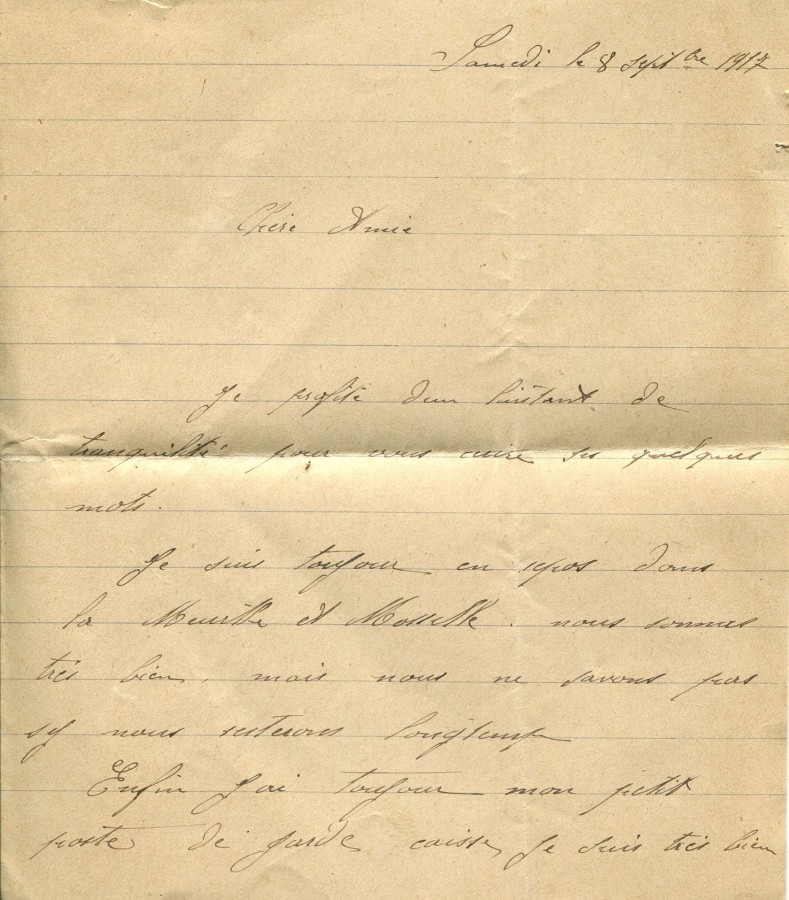 Samedi le 8 sept bre 1917
Chère Amie
Je profite d'un l'instant de
tranquilité pour vous écrire ses quelques
mots.
Je suis toujour en repos dans
la Meurthe et Moselle. nous sommes
très bien, mais nous ne savons pas
sy nous resterons longtemp
Enfin j'ai toujour mon petit
poste de garde caisse, je suis très bien